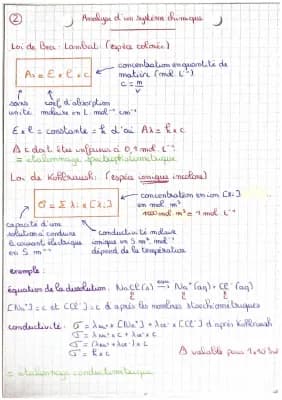 ② Analyse d'un système chimique
Loi de Beer Lambert (espèce colorée)
Aλ = E x l x c
concentration en quantité de
matière (mol. L⁻¹)
c = n/v
sans
unité
coef d'absorption
molaire en L. mol⁻¹ cm⁻¹
E x l = constante = k d'où Aλ = k x c
⚠ c doit être inférieur à 0,1 mol. L⁻¹
= étalonnage spectrophotométrique
Loi de Kohlrausch: (espèce ionique incolore)
σ = Σ λi x [Xi]
concentration en ion [Xi]
en mol. m³
1000 mol. m³ = 1 mol. L⁻¹
capacité d'une
solution à conduire
le courant électrique
en S m⁻¹
conductivité molaire
ionique en S m². mol⁻¹
dépend de la température
exemple:
équation de la dissolution: NaCl (s) → Na⁺ (aq) + Cl⁻ (aq)
[Na⁺] = c et [Cl⁻] = c d'après les nombres stoechiométriques
conductivité: σ = λNa⁺ x [Na⁺] + λCl⁻ x [Cl⁻] d'après Kohlrausch
σ = λNa⁺ x c + λCl⁻ x c
σ = (λNa⁺ + λCl⁻) x c
σ = k x c
⚠ valable pour
= étalonnage conductimétrique